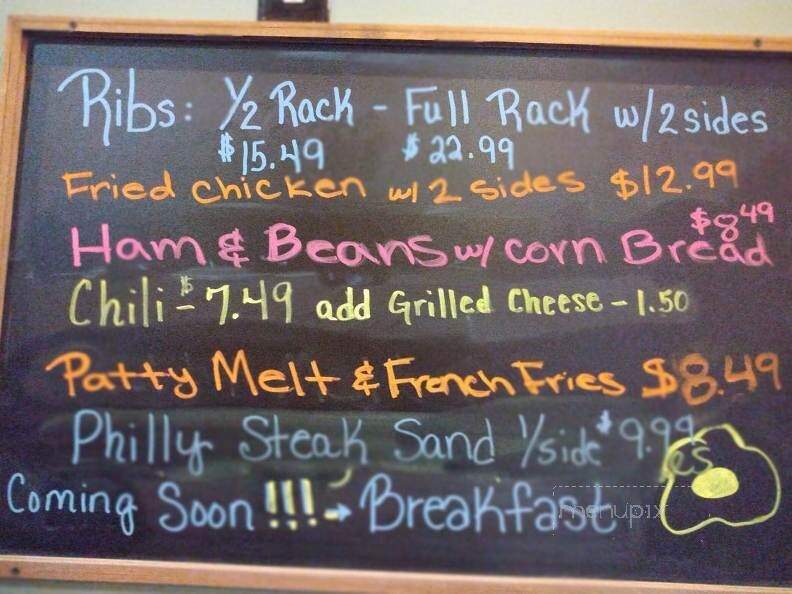 Ribs: 1/2 Rack - Full Rack w/2 sides
$15.49 $22.99
Fried chicken w/ 2 sides $12.99
Ham & Beans w/ corn Bread $8.49
Chili - $7.49 add Grilled Cheese - 1.50
Patty Melt & French Fries $8.49
Philly Steak Sand 1/side $9.99
Coming Soon !!! → Breakfast
menupix